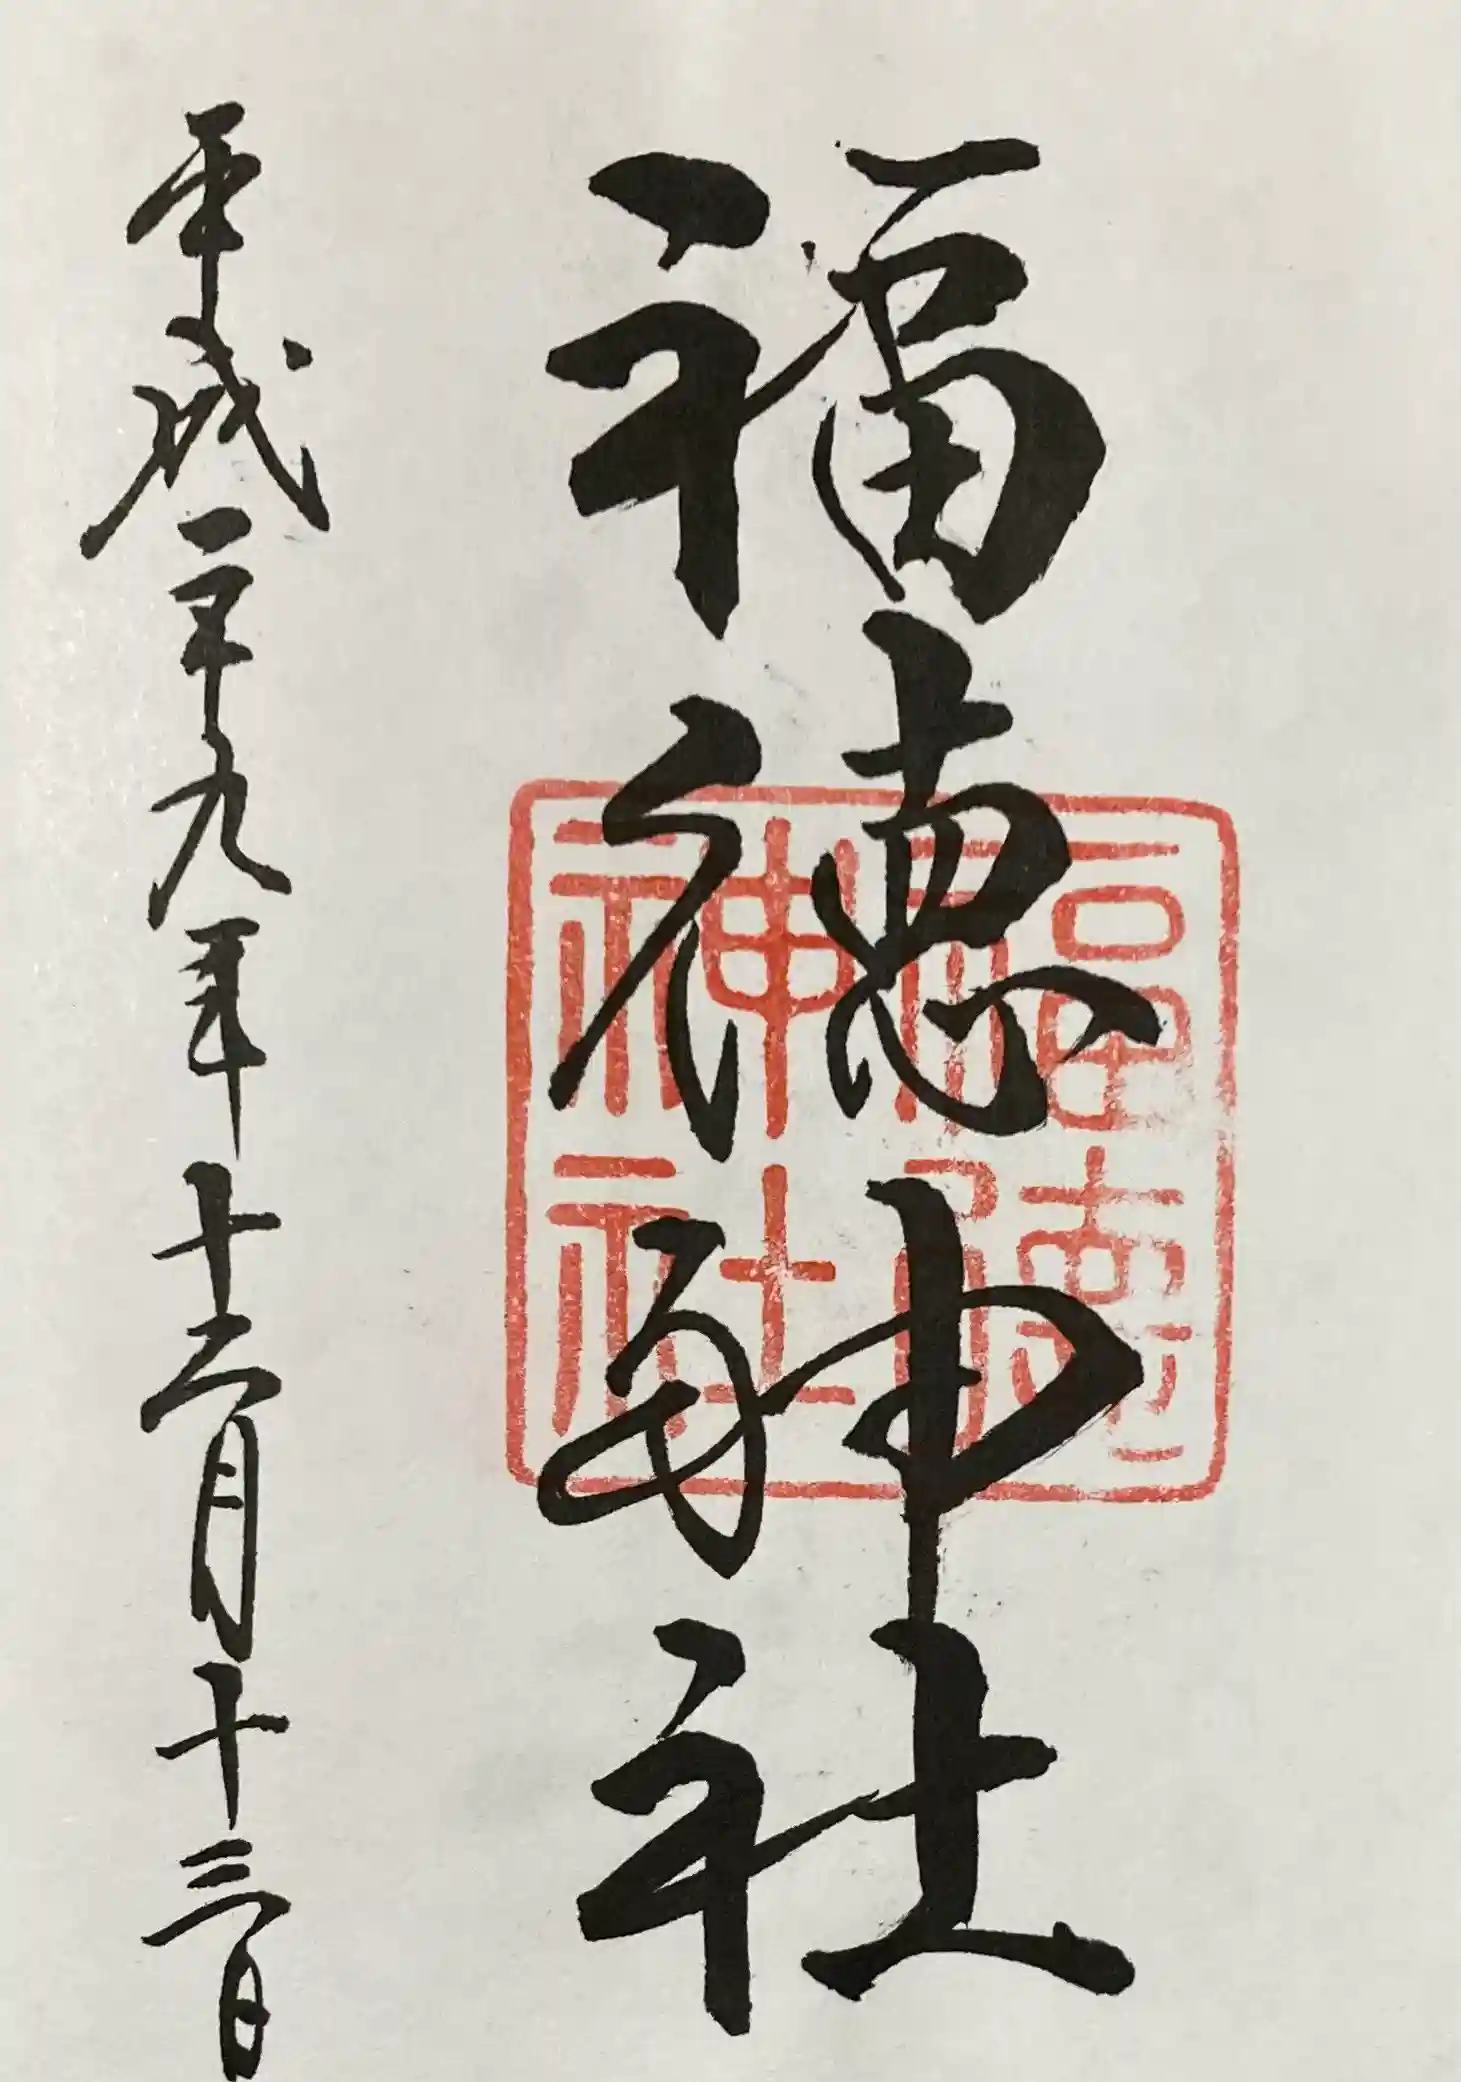 福徳神社
福徳神社
平成二十九年十二月十三日